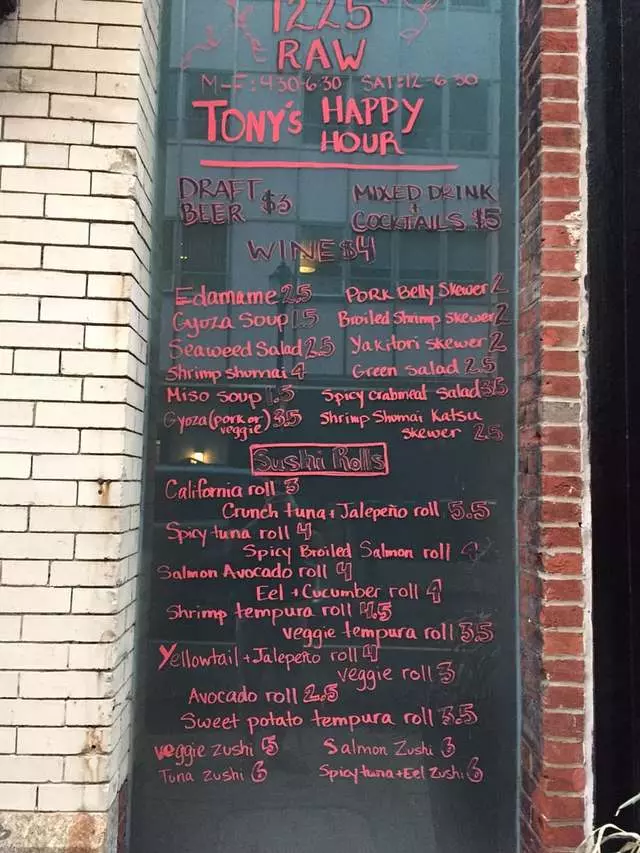 1225
RAW
M-F: 430-6:30 SAT: 12-6:30
TONY'S HAPPY HOUR
DRAFT BEER $3
MIXED DRINK + COCKTAILS $5
WINE $4
Edamame 2.5
Pork Belly Skewer 2
Gyoza Soup 1.5
Broiled Shrimp Skewer 2
Seaweed Salad 2.5
Yakitori skewer 2
Shrimp Shumai 4
Green Salad 2.5
Miso Soup 1.5
Spicy crabmeat Salad 3.5
Gyoza (pork or veggie) 3.5
Shrimp Shumai Katsu
skewer 2.5
Sushi Rolls
California roll 3
Crunch tuna + Jalepeño roll 5.5
Spicy tuna roll 4
Spicy Broiled Salmon roll 4
Salmon Avocado roll 4
Eel + Cucumber roll 4
Shrimp tempura roll 4.5
veggie tempura roll 3.5
Yellowtail + Jalepeño roll 4
veggie roll 3
Avocado roll 2.5
Sweet potato tempura roll 3.5
veggie zushi 5
Salmon Zushi 6
Tuna zushi 6
Spicy tuna + Eel Zushi 6